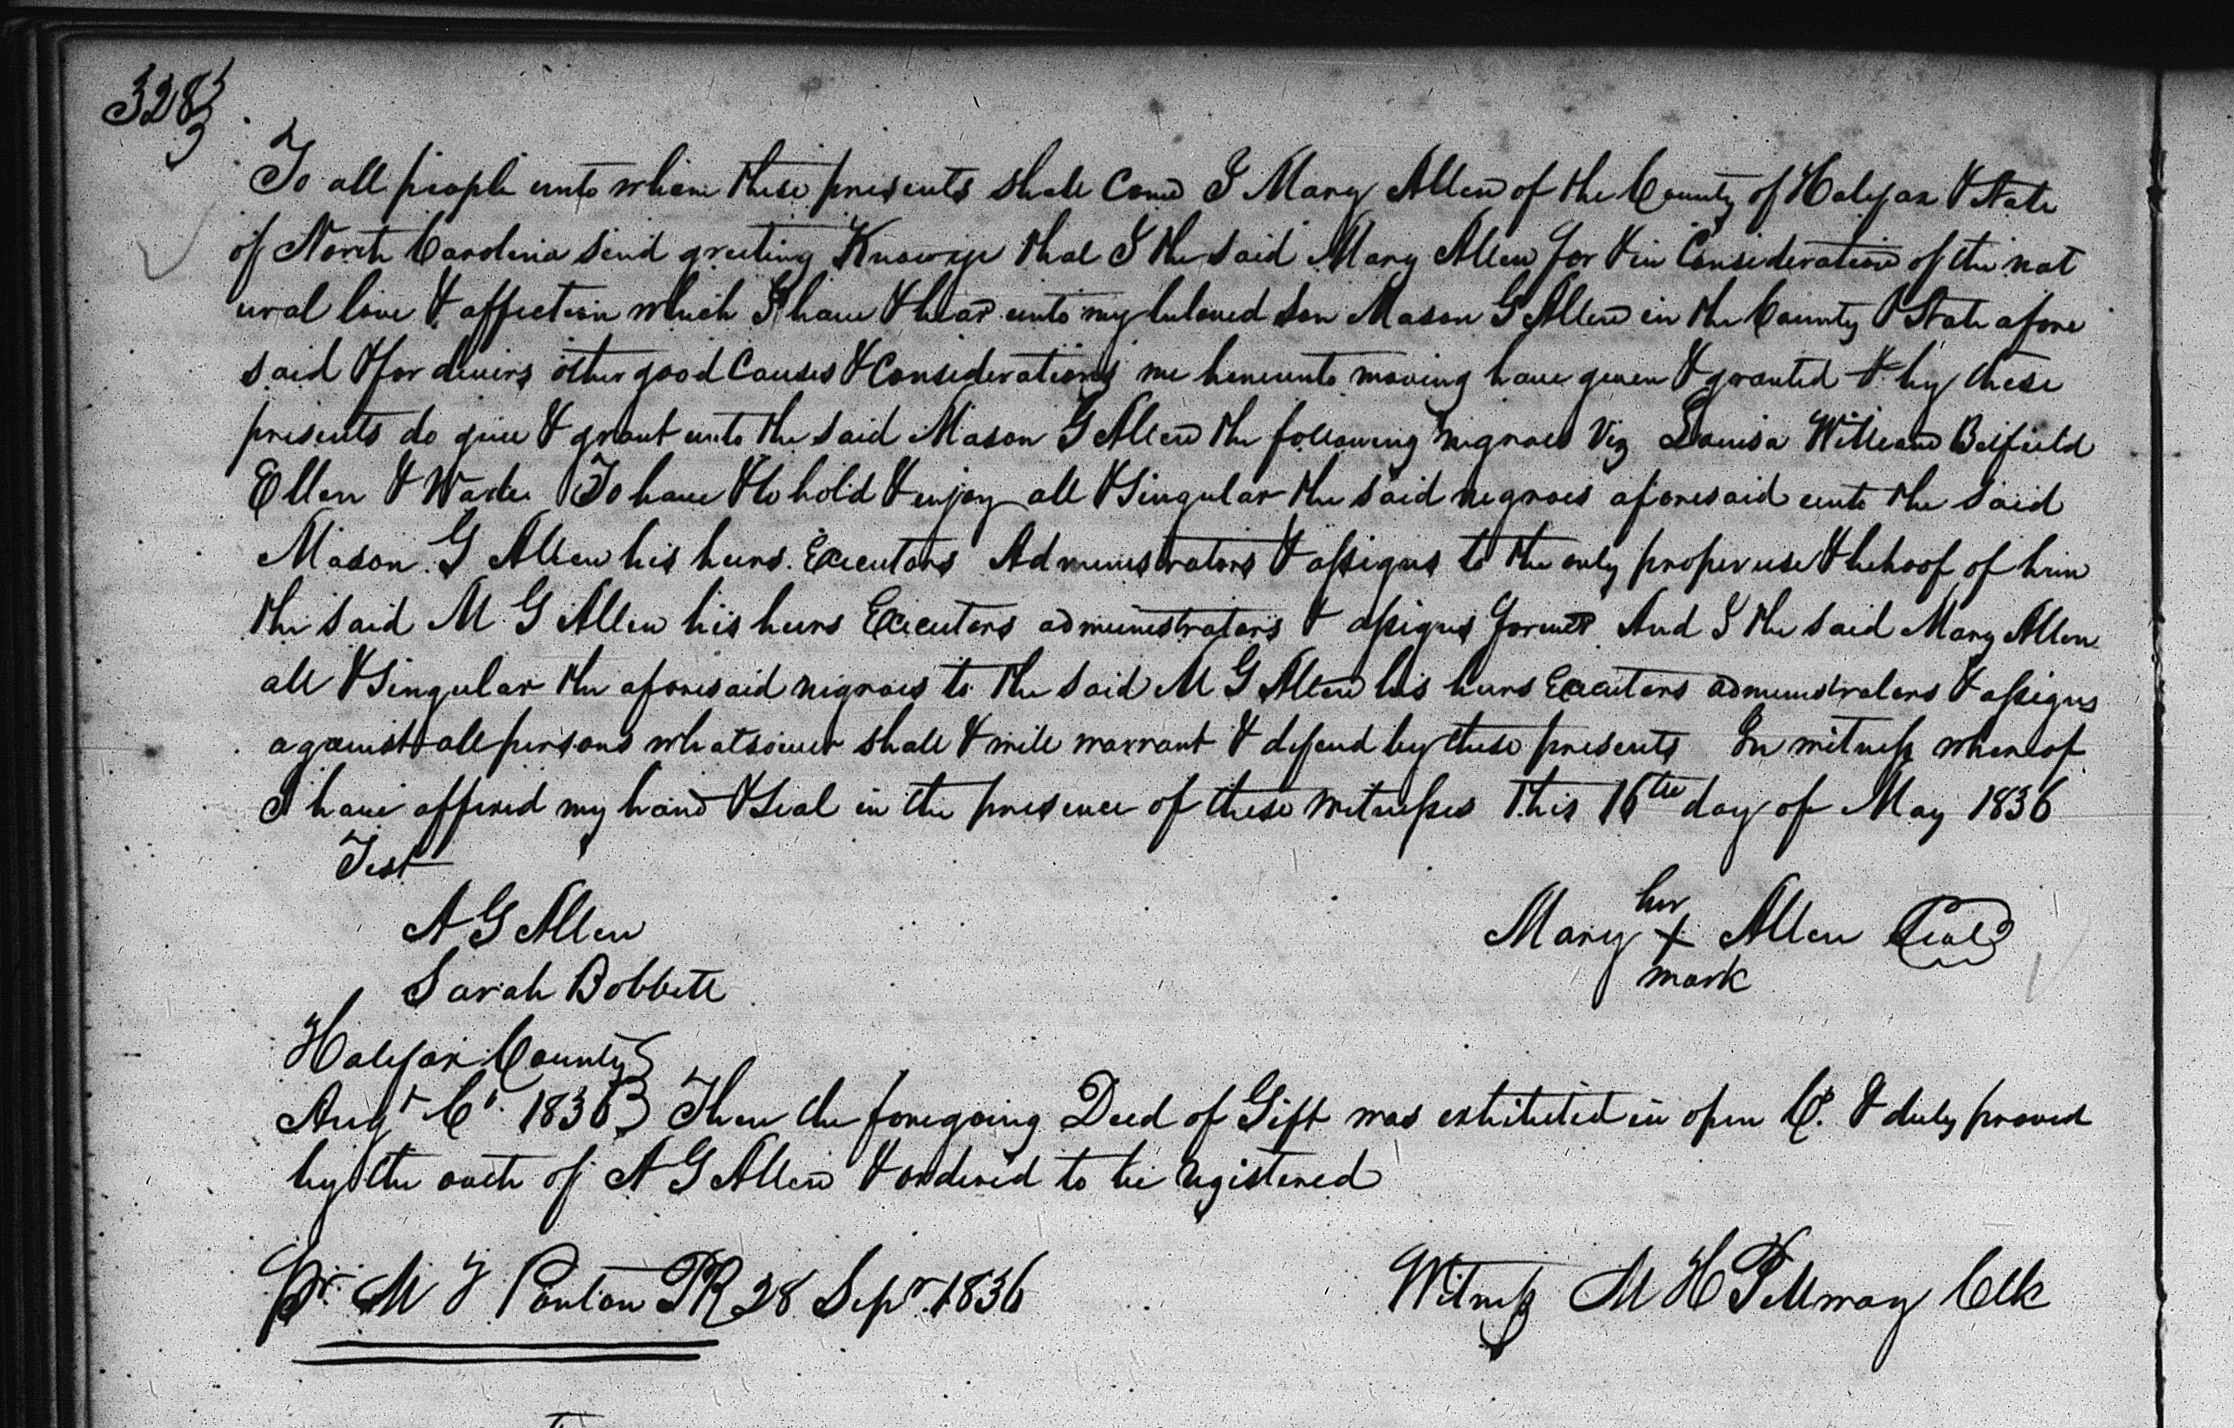 3283
To all people unto whom these presents shall come I Mary Allen of the County of Halifax & State
of North Carolina send greeting Know ye that I the said Mary Allen for & in Consideration of the nat
ural love & affection which I have & bear unto my beloved son Mason G Allen in the County & State afore
said & for divers other good Causes & Considerations me hereunto moving have given & granted & by these
presents do give & grant unto the said Mason G Allen the following negroes Viz Louisa William Belfield
Ellen & To have & to hold & enjoy all & Singular the said negroes aforesaid unto the said
Mason G Allen his heirs Executors Administrators & assigns to the only proper use & behoof of him
the said M G Allen his heirs Executors administrators & assigns forever And I the said Mary Allen
all & Singular the aforesaid negroes to the said M G Allen his heirs Executors administrators & assigns
against all persons whatsoever shall & will warrant & defend by these presents In witness whereof
I have affixed my hand & Seal in the presence of these witnesses this 16th day of May 1836
Test
A G Allen
her
Mary X Allen Seal
mark
Sarah Bobbitt
Halifax County
Augt Ct. 1836 } Then the foregoing Deed of Gift was exhibited in open Ct. & duly proved
by the oath of A G Allen & ordered to be registered
Pr. M F Ponton PR 28 Sepr. 1836
Witness M H Pettway Clk